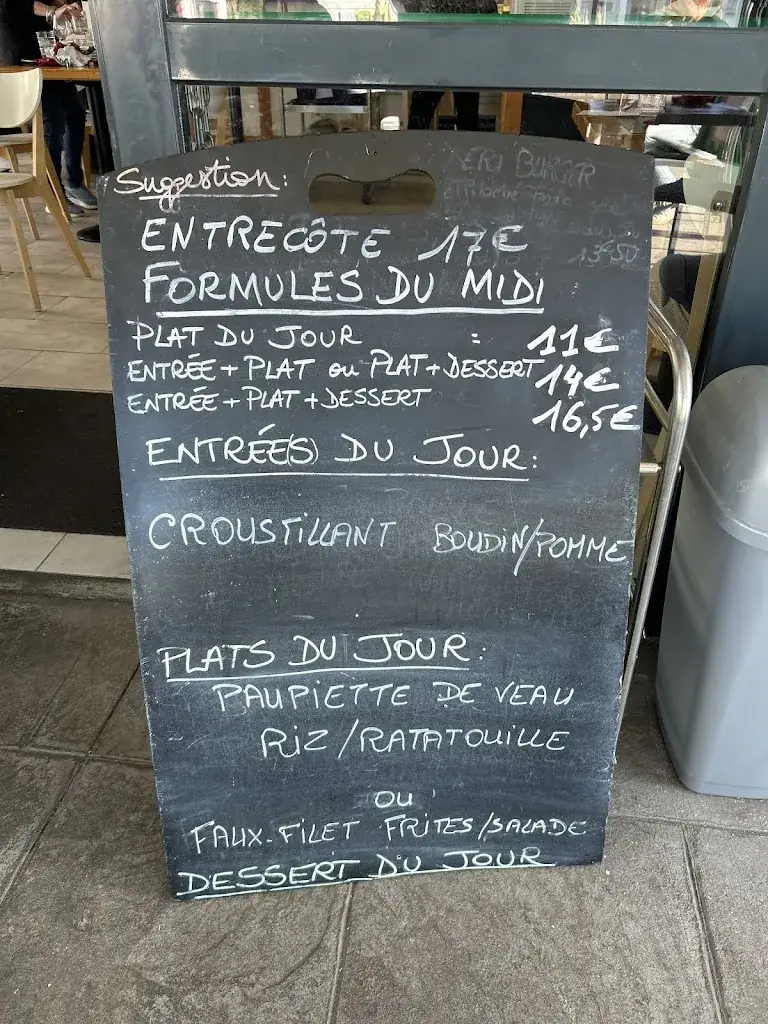 Suggestion:
ENTRECÔTE 17€
FORMULES DU MIDI
PLAT DU JOUR : 11€
ENTRÉE + PLAT ou PLAT + DESSERT 14€
ENTRÉE + PLAT + DESSERT 16,5€
ENTRÉE(S) DU JOUR:
CROUSTILLANT BOUDIN/POMME
PLATS DU JOUR:
PAUPIETTE DE VEAU
RIZ/RATATOUILLE
OU
FAUX-FILET FRITES/SALADE
DESSERT DU JOUR